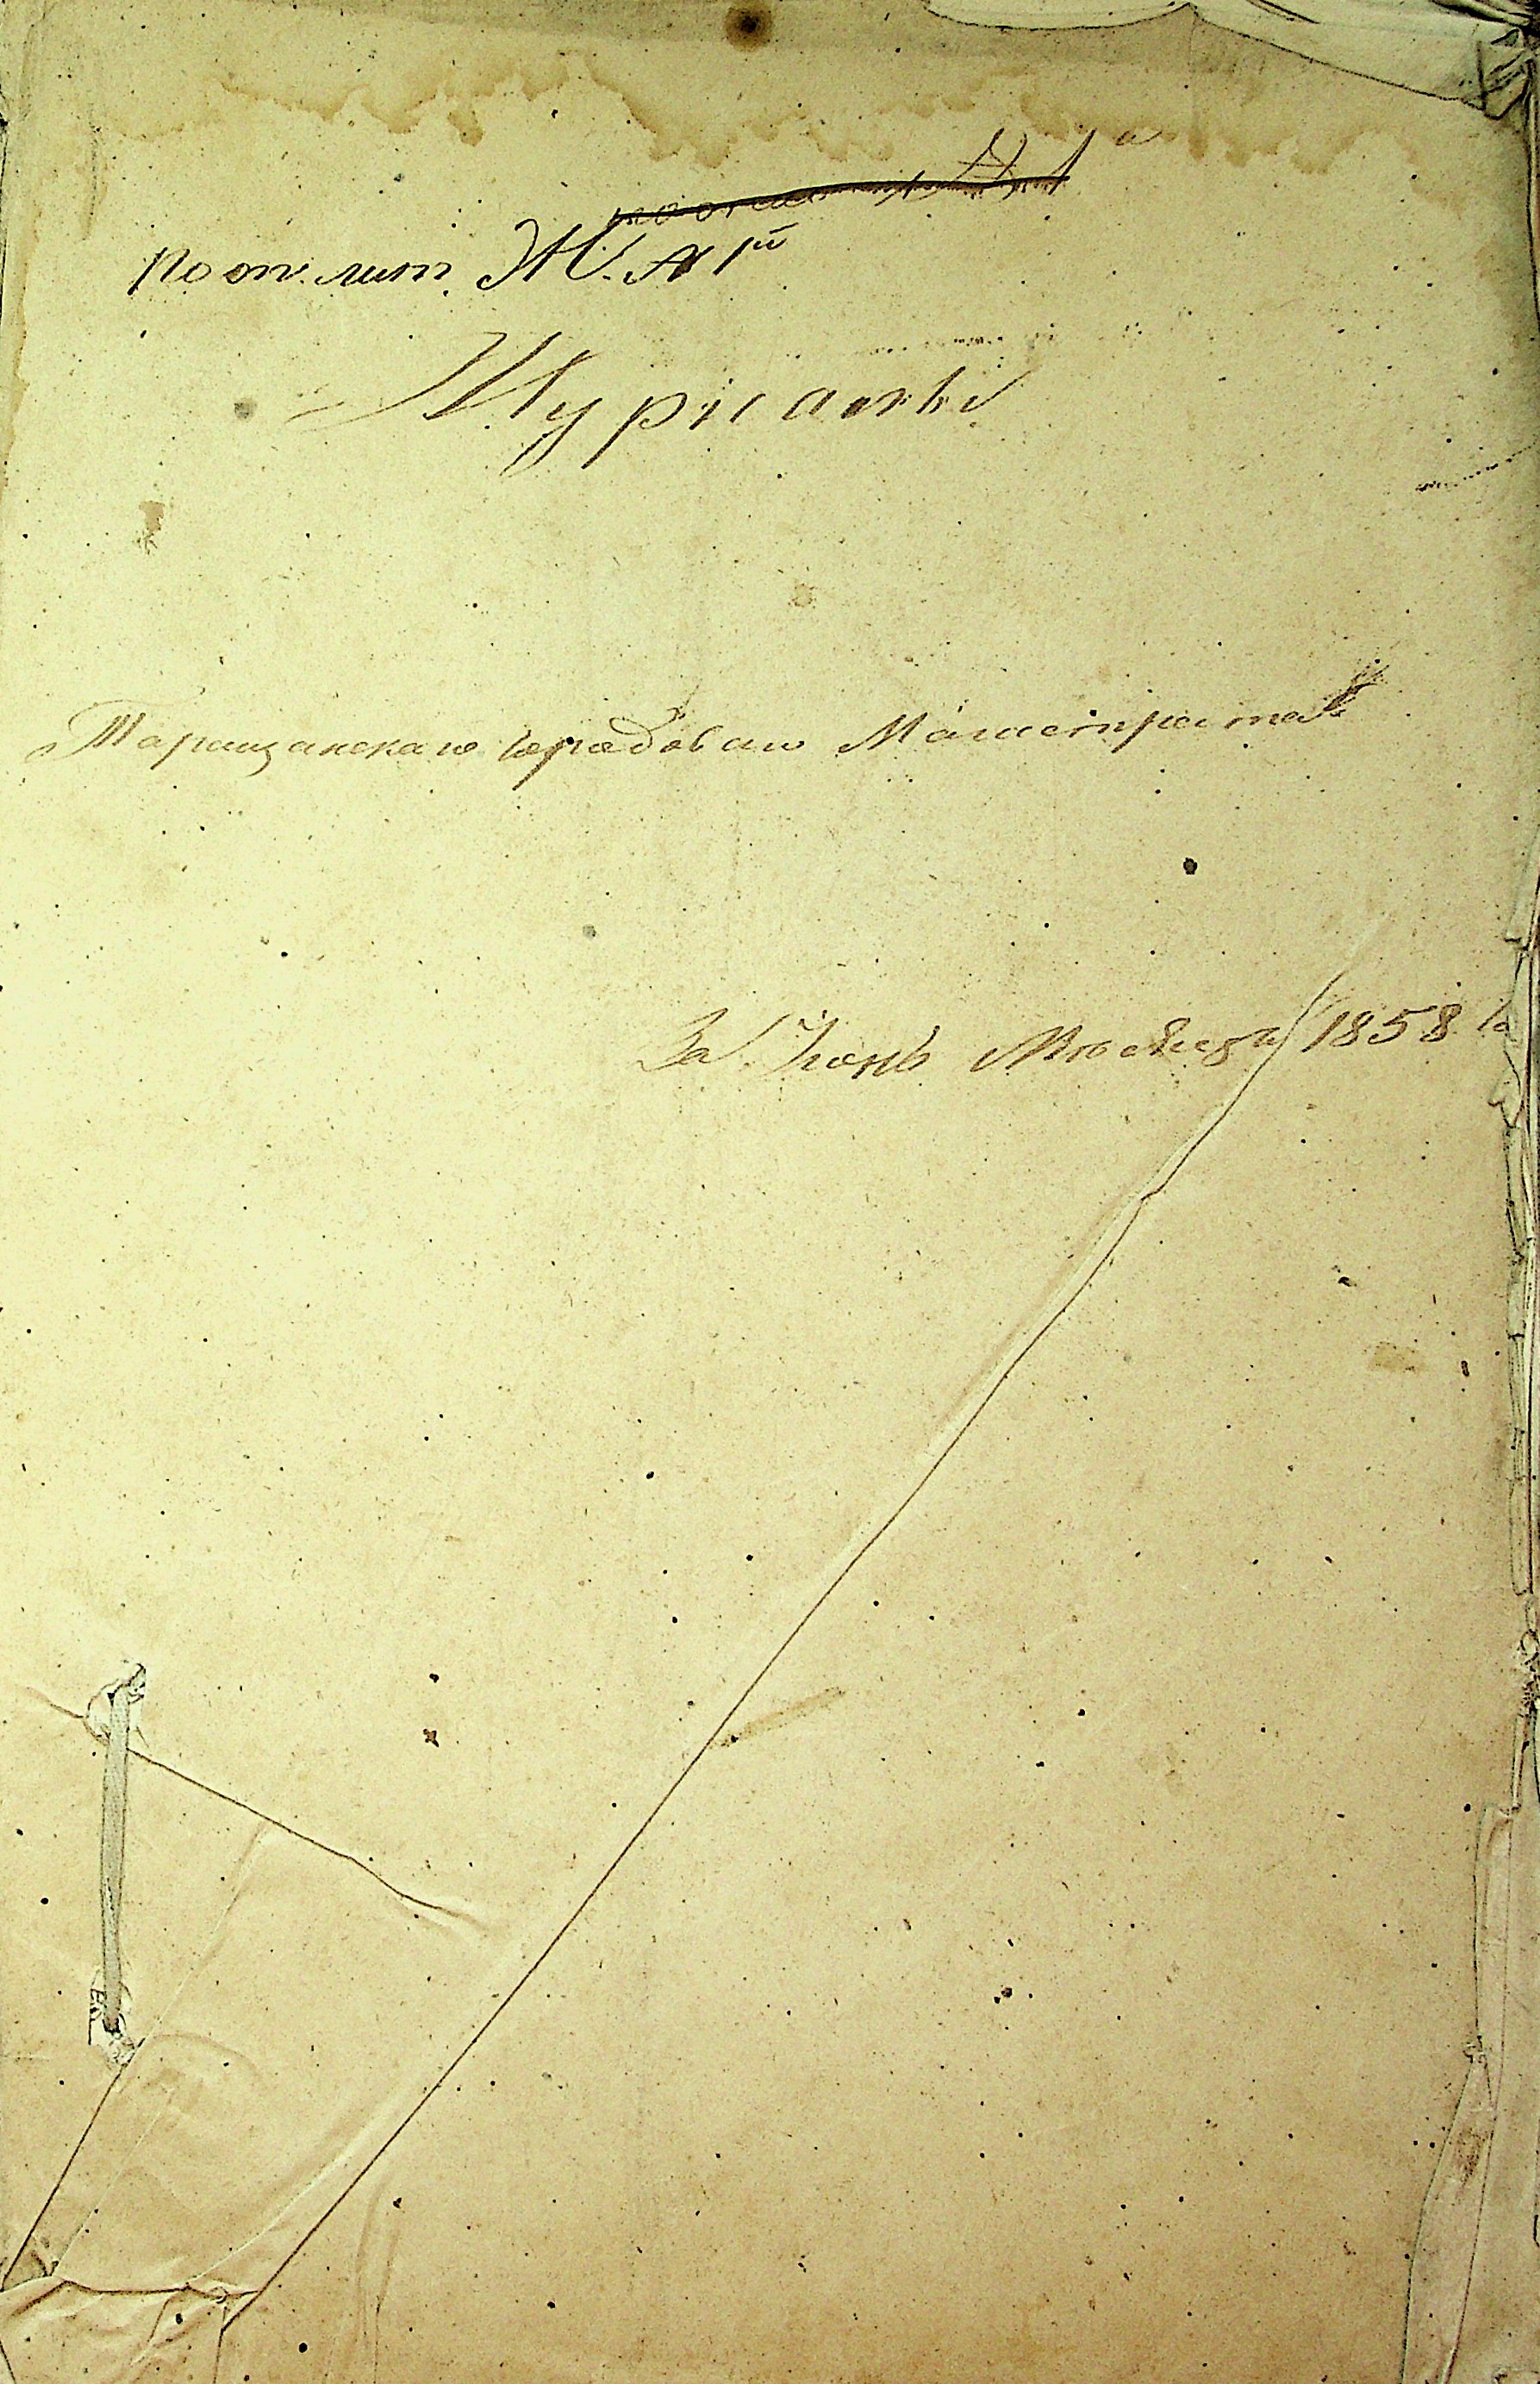 по оп. лит. Ж. № 1й
Журналы
Таращанскаго Городоваго Магистрата
За Июнь Мѣсяцъ 1858 го